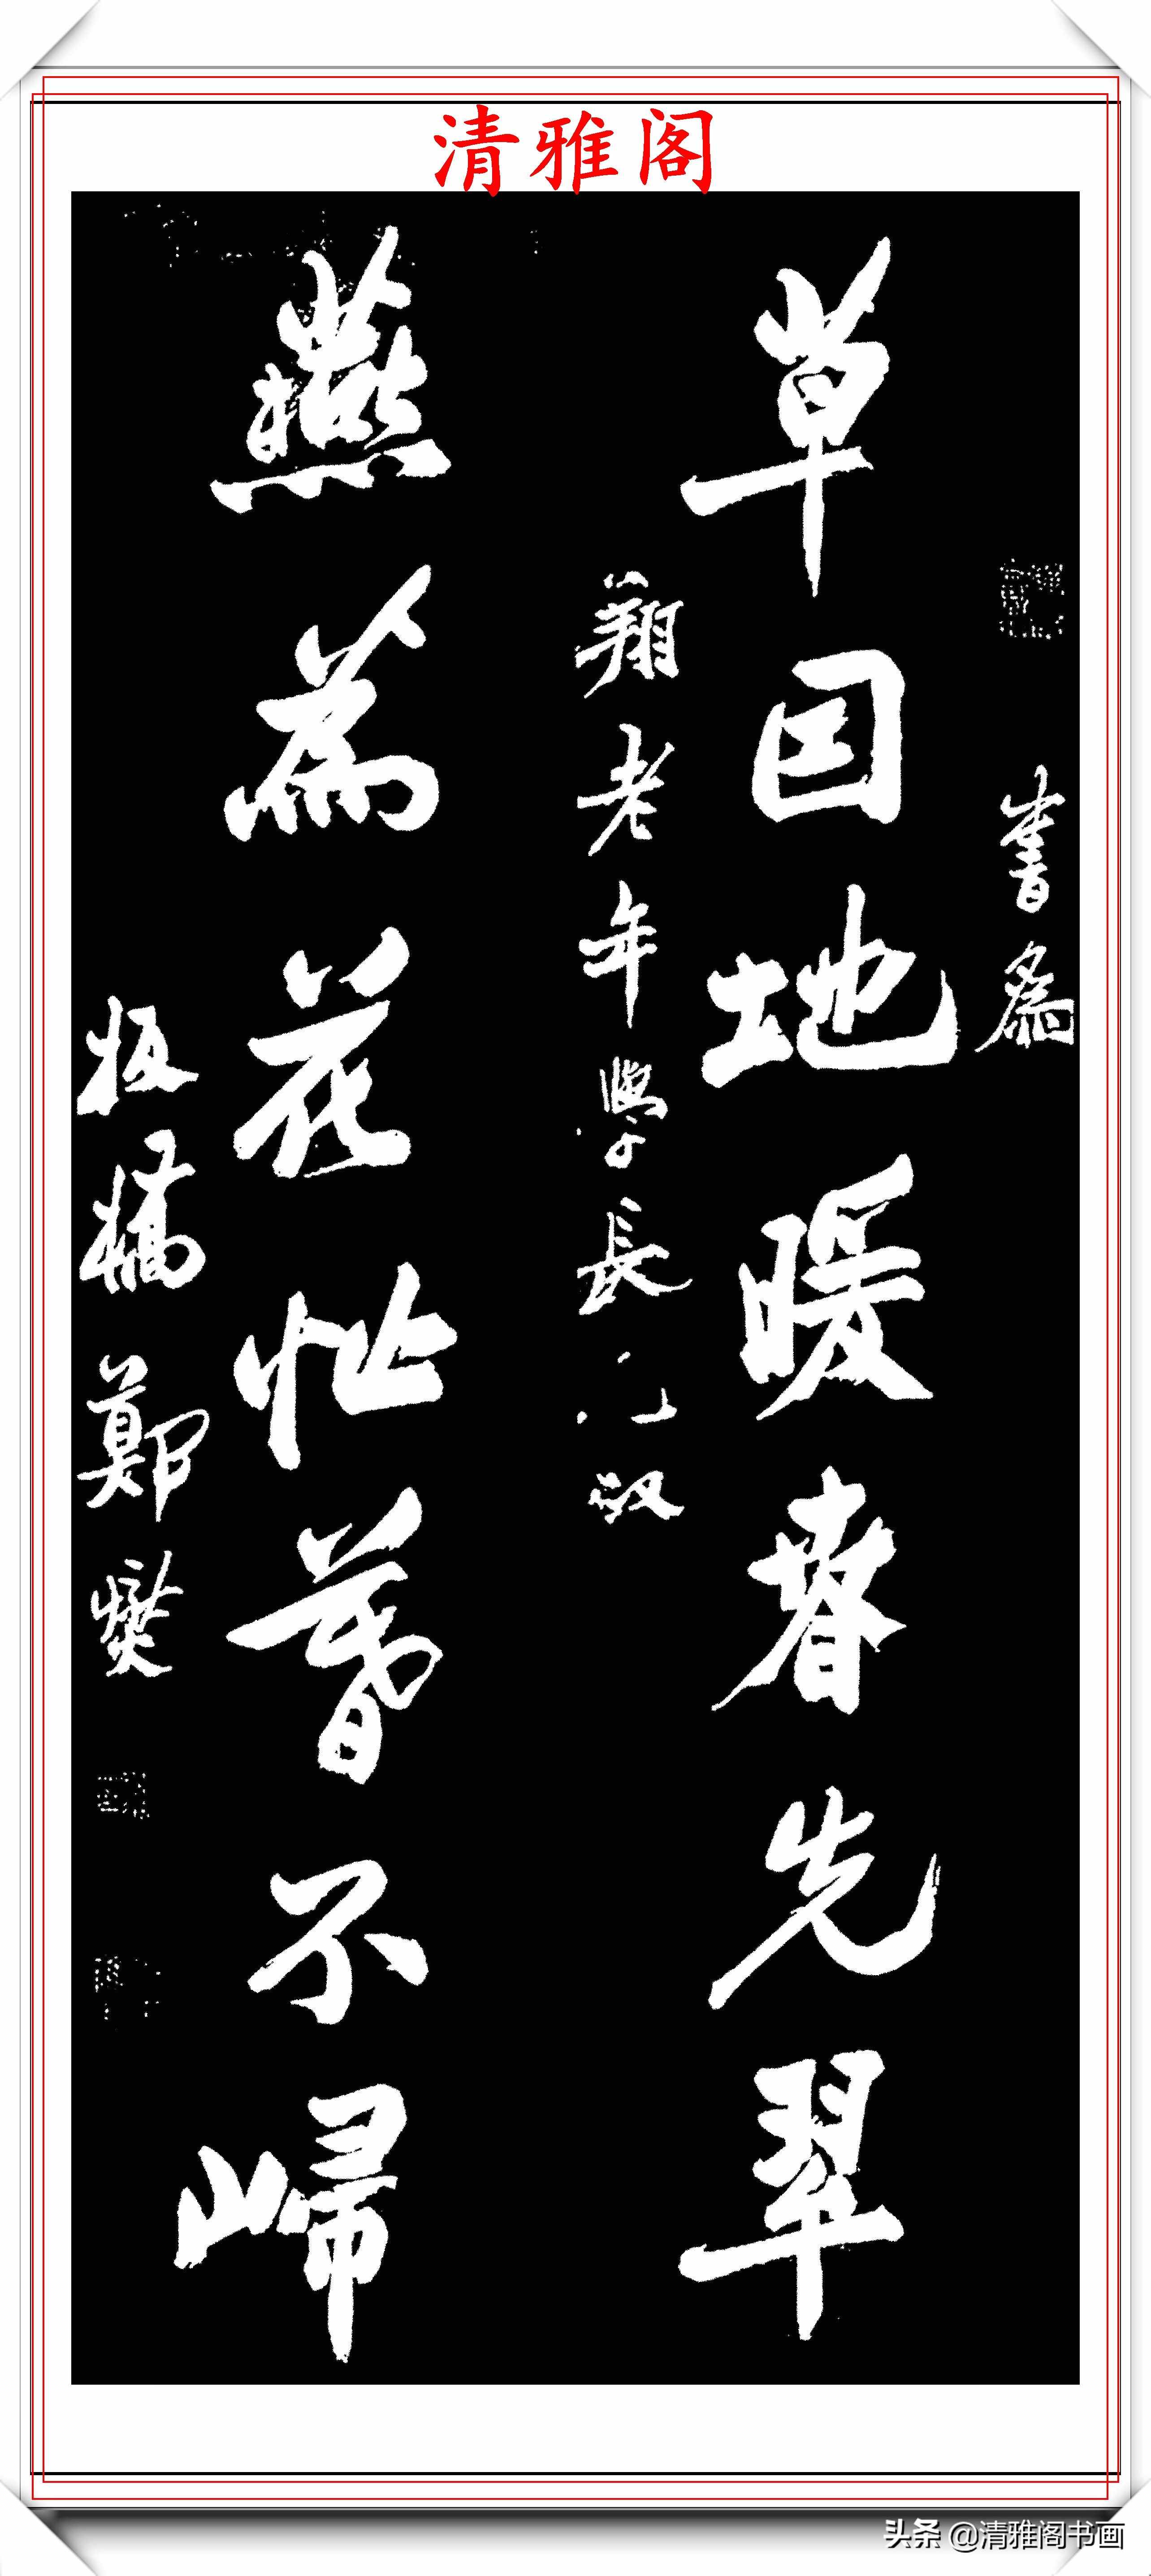 清雅阁
書為
草因地暖春先翠
翔老年學長兄政
燕為花忙暮不歸
板橋鄭燮
头条 @清雅阁书画